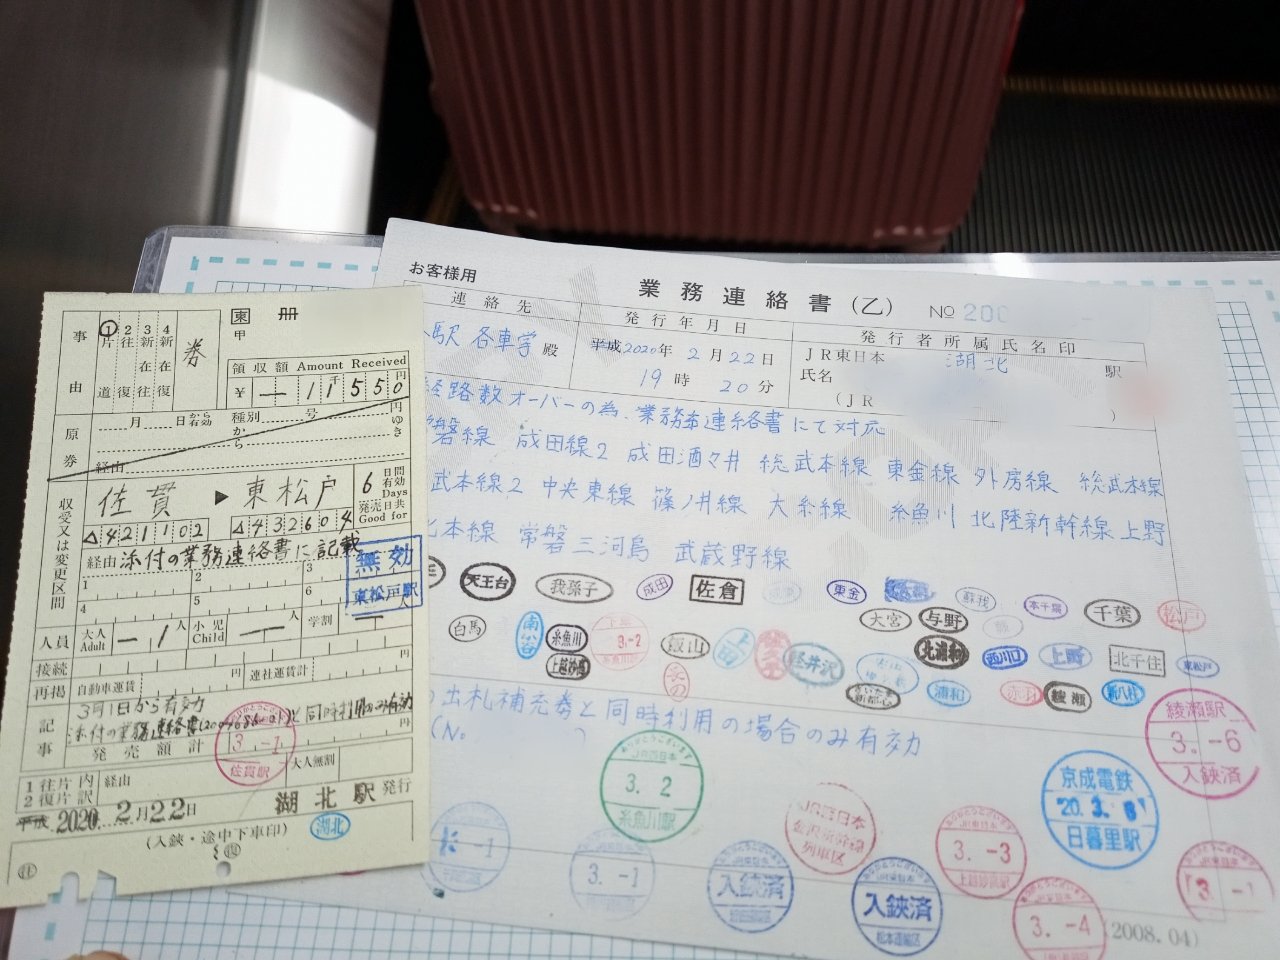 東
冊
甲
事由
1 片道
2 往復
3 新在往
4 新在復
券
領収額 Amount Received
¥ 11550円
原券
月 日から有効
種別
号
から
円
ゆき
経由
収受又は変更区間
佐貫 ▶ 東松戸
6日間有効 Days
発売日共 Good for
△421102 △432604
経由 添付の業務連絡書に記載
1 2 3
4 5 6
無効
東松戸駅
人員
大人 Adult 1人
小児 Child 人
学割 人
接続
再掲
自動車運賃 円
連社運賃計 円
記事
3月1日から有効
発売額計 円
3.-1
佐貫駅
1往片 内
2復片 訳
経由
大人無割
平成 2020年2月22日
湖北駅発行
湖北
(入鋏・途中下車印)
お客様用
業務連絡書(乙) № 200
連絡先
発行年月日
発行者所属氏名印
駅 各車掌 殿
平成2020年2月22日
19時20分
JR東日本 湖北 駅
氏名
(JR )
経路数オーバーの為、業務連絡書にて対応
磐線 成田線2 成田酒々井 総武本線 東金線 外房線 総武本線
武本線2 中央東線 篠ノ井線 大糸線 糸魚川 北陸新幹線 上野
本線 常磐三河島 武蔵野線
天王台 我孫子 成田 佐倉 東金 蘇我 本千葉 千葉 松戸
大宮 与野
白馬 南小谷 糸魚川 飯山 上田 軽井沢 北浦和 西川口 上野 北千住 東松戸
上越妙高 浦和 赤羽 綾瀬 新八柱
出札補充券と同時利用の場合のみ有効
(No. )
綾瀬駅
3.-6
入鋏済
JR西日本
3.2
糸魚川駅
JR西日本
金沢新幹線
列車区
京成電鉄
'20.3.6
日暮里駅
JR東日本
3.-3
上越妙高駅
-1
3.-1
入鋏済
入鋏済
松本運輸区
3.-4
3.-1
(2008.04)